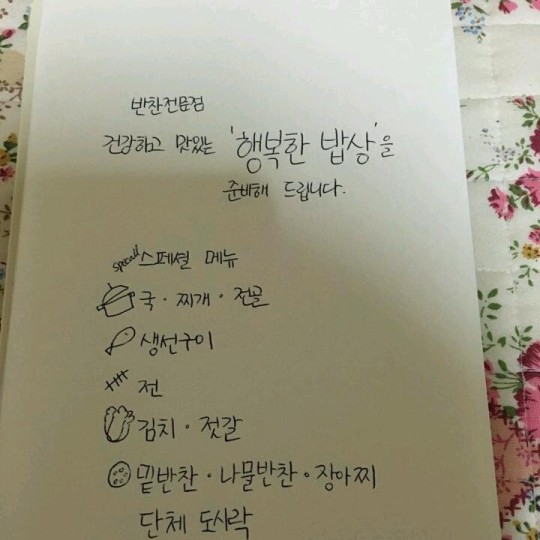 반찬전문점
건강하고 맛있는 '행복한 밥상'을
준비해 드립니다.
special 스페셜 메뉴
국·찌개·전골
생선구이
전
김치·젓갈
밑반찬·나물반찬·장아찌
단체 도시락